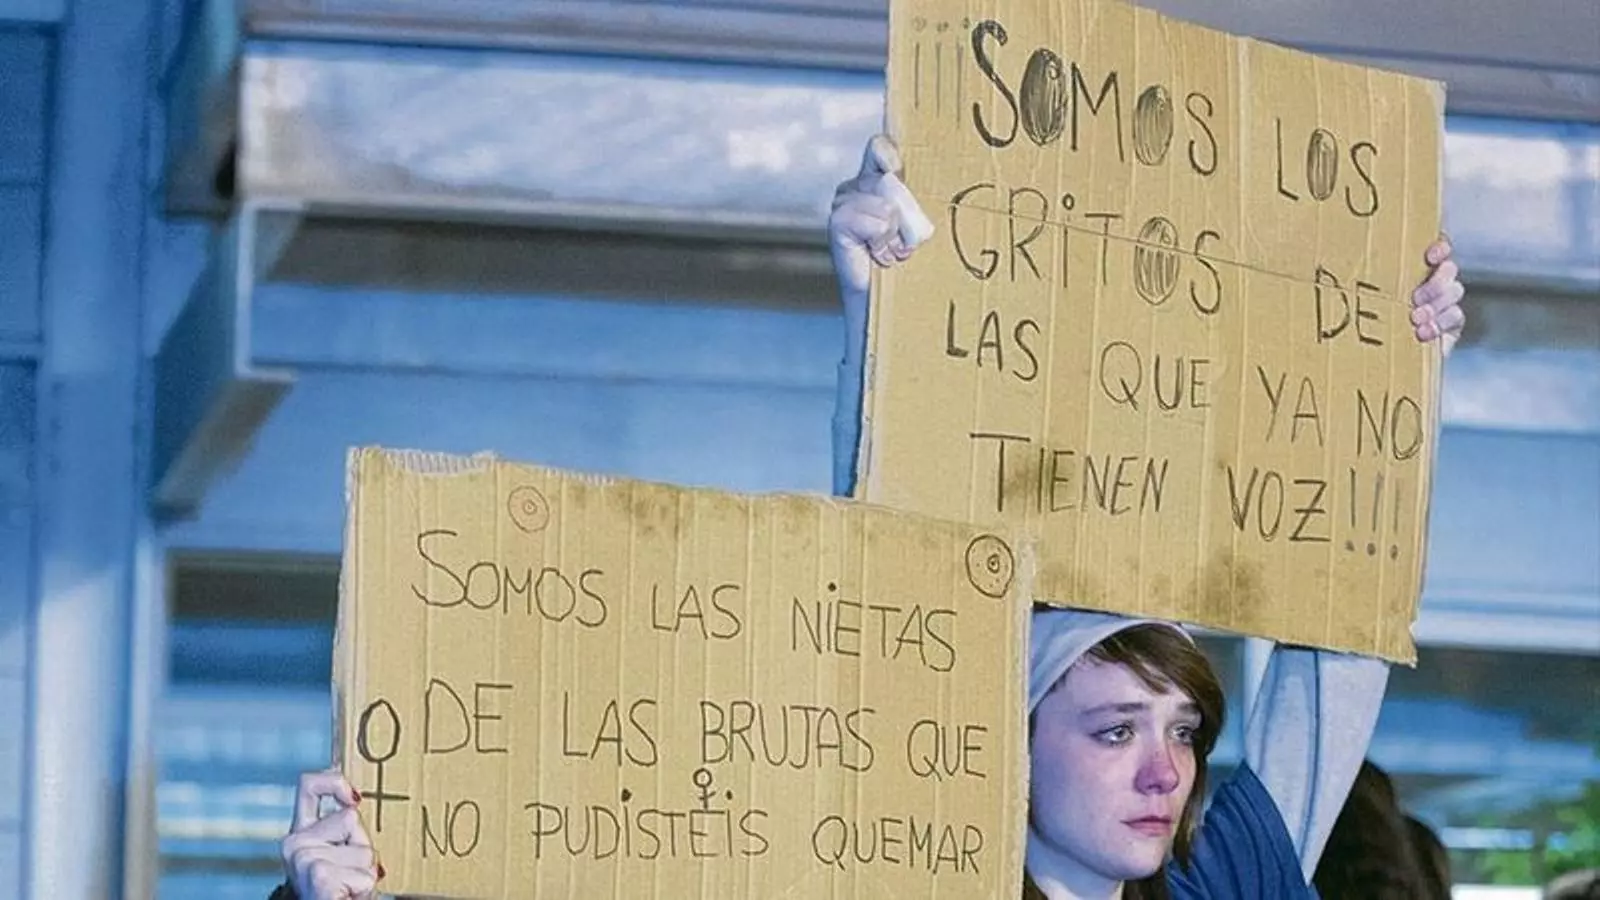 ¡¡¡SOMOS LOS
GRITOS DE
LAS QUE YA NO
TIENEN VOZ!!!
SOMOS LAS NIETAS
DE LAS BRUJAS QUE
NO PUDISTEIS QUEMAR